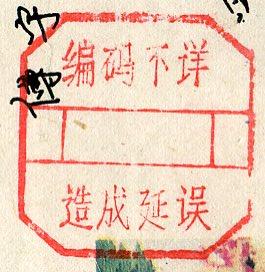 编码不详
造成延误